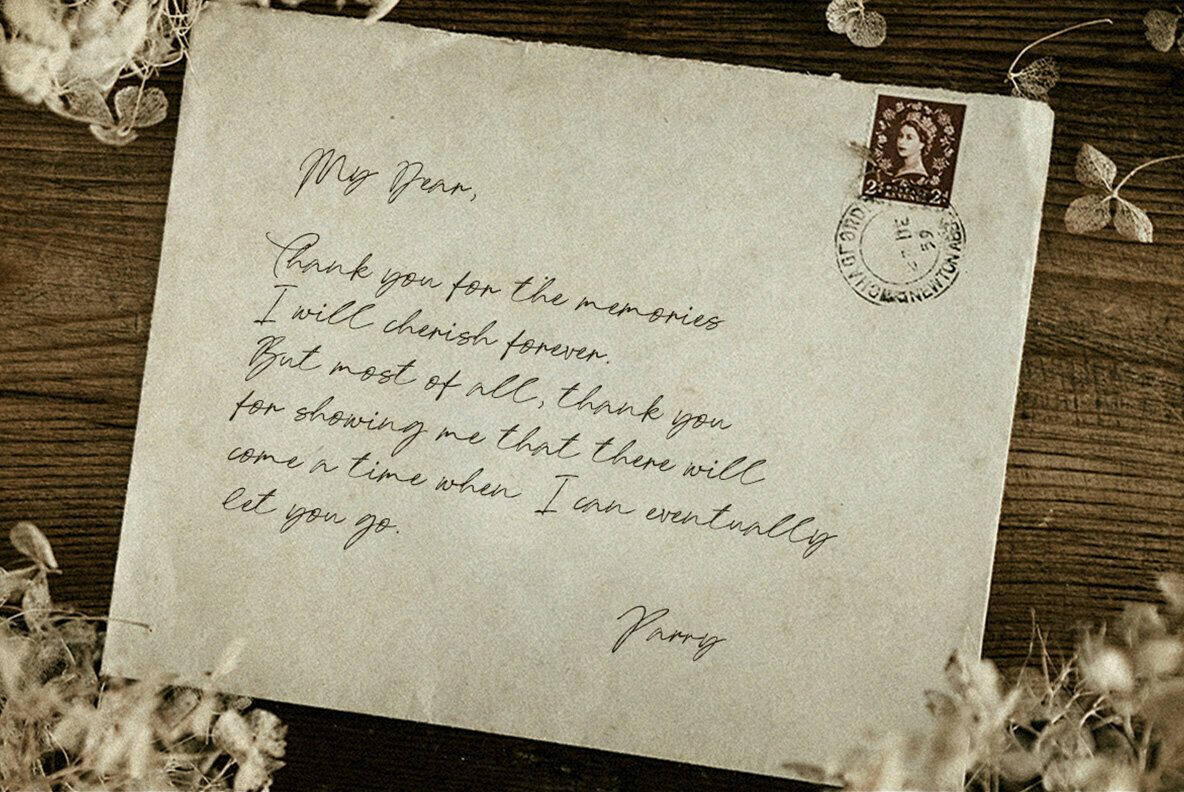 My Dear,
Thank you for the memories
I will cherish forever.
But most of all, thank you
for showing me that there will
come a time when I can eventually
let you go.
Parry
2D 2D
DE
59
NEWTON ABBOT